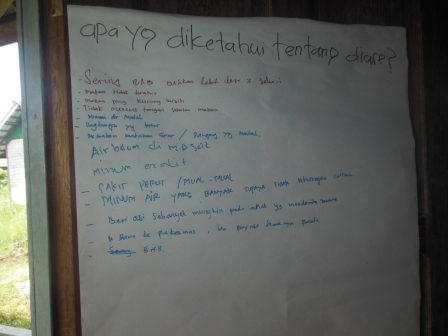 apa yg diketahui tentang diare?
- Sering BAB bahkan lebih dari x sehari
- Makan tidak teratur
- Makan yang kurang bersih
- Tidak mencuci tangan sebelum makan
- Minum air mentah
- Lingkungan yg kotor
Air belum di masak
minum oralit
- SAKIT PERUT / MUAL-MUAL
- MINUM AIR YANG BANYAK supaya tidak kekurangan cairan
- Beri asi sebanyak mungkin pada anak yg menderita
- di bawa ke puskesmas
- BAB